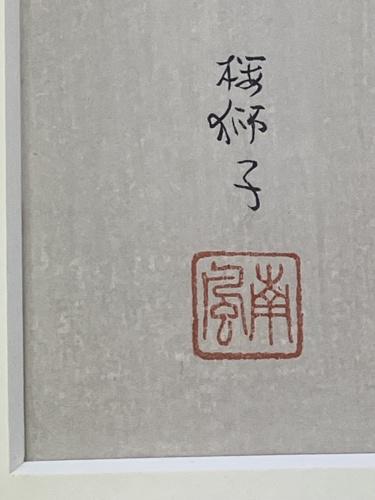 桜
獅
子
南風